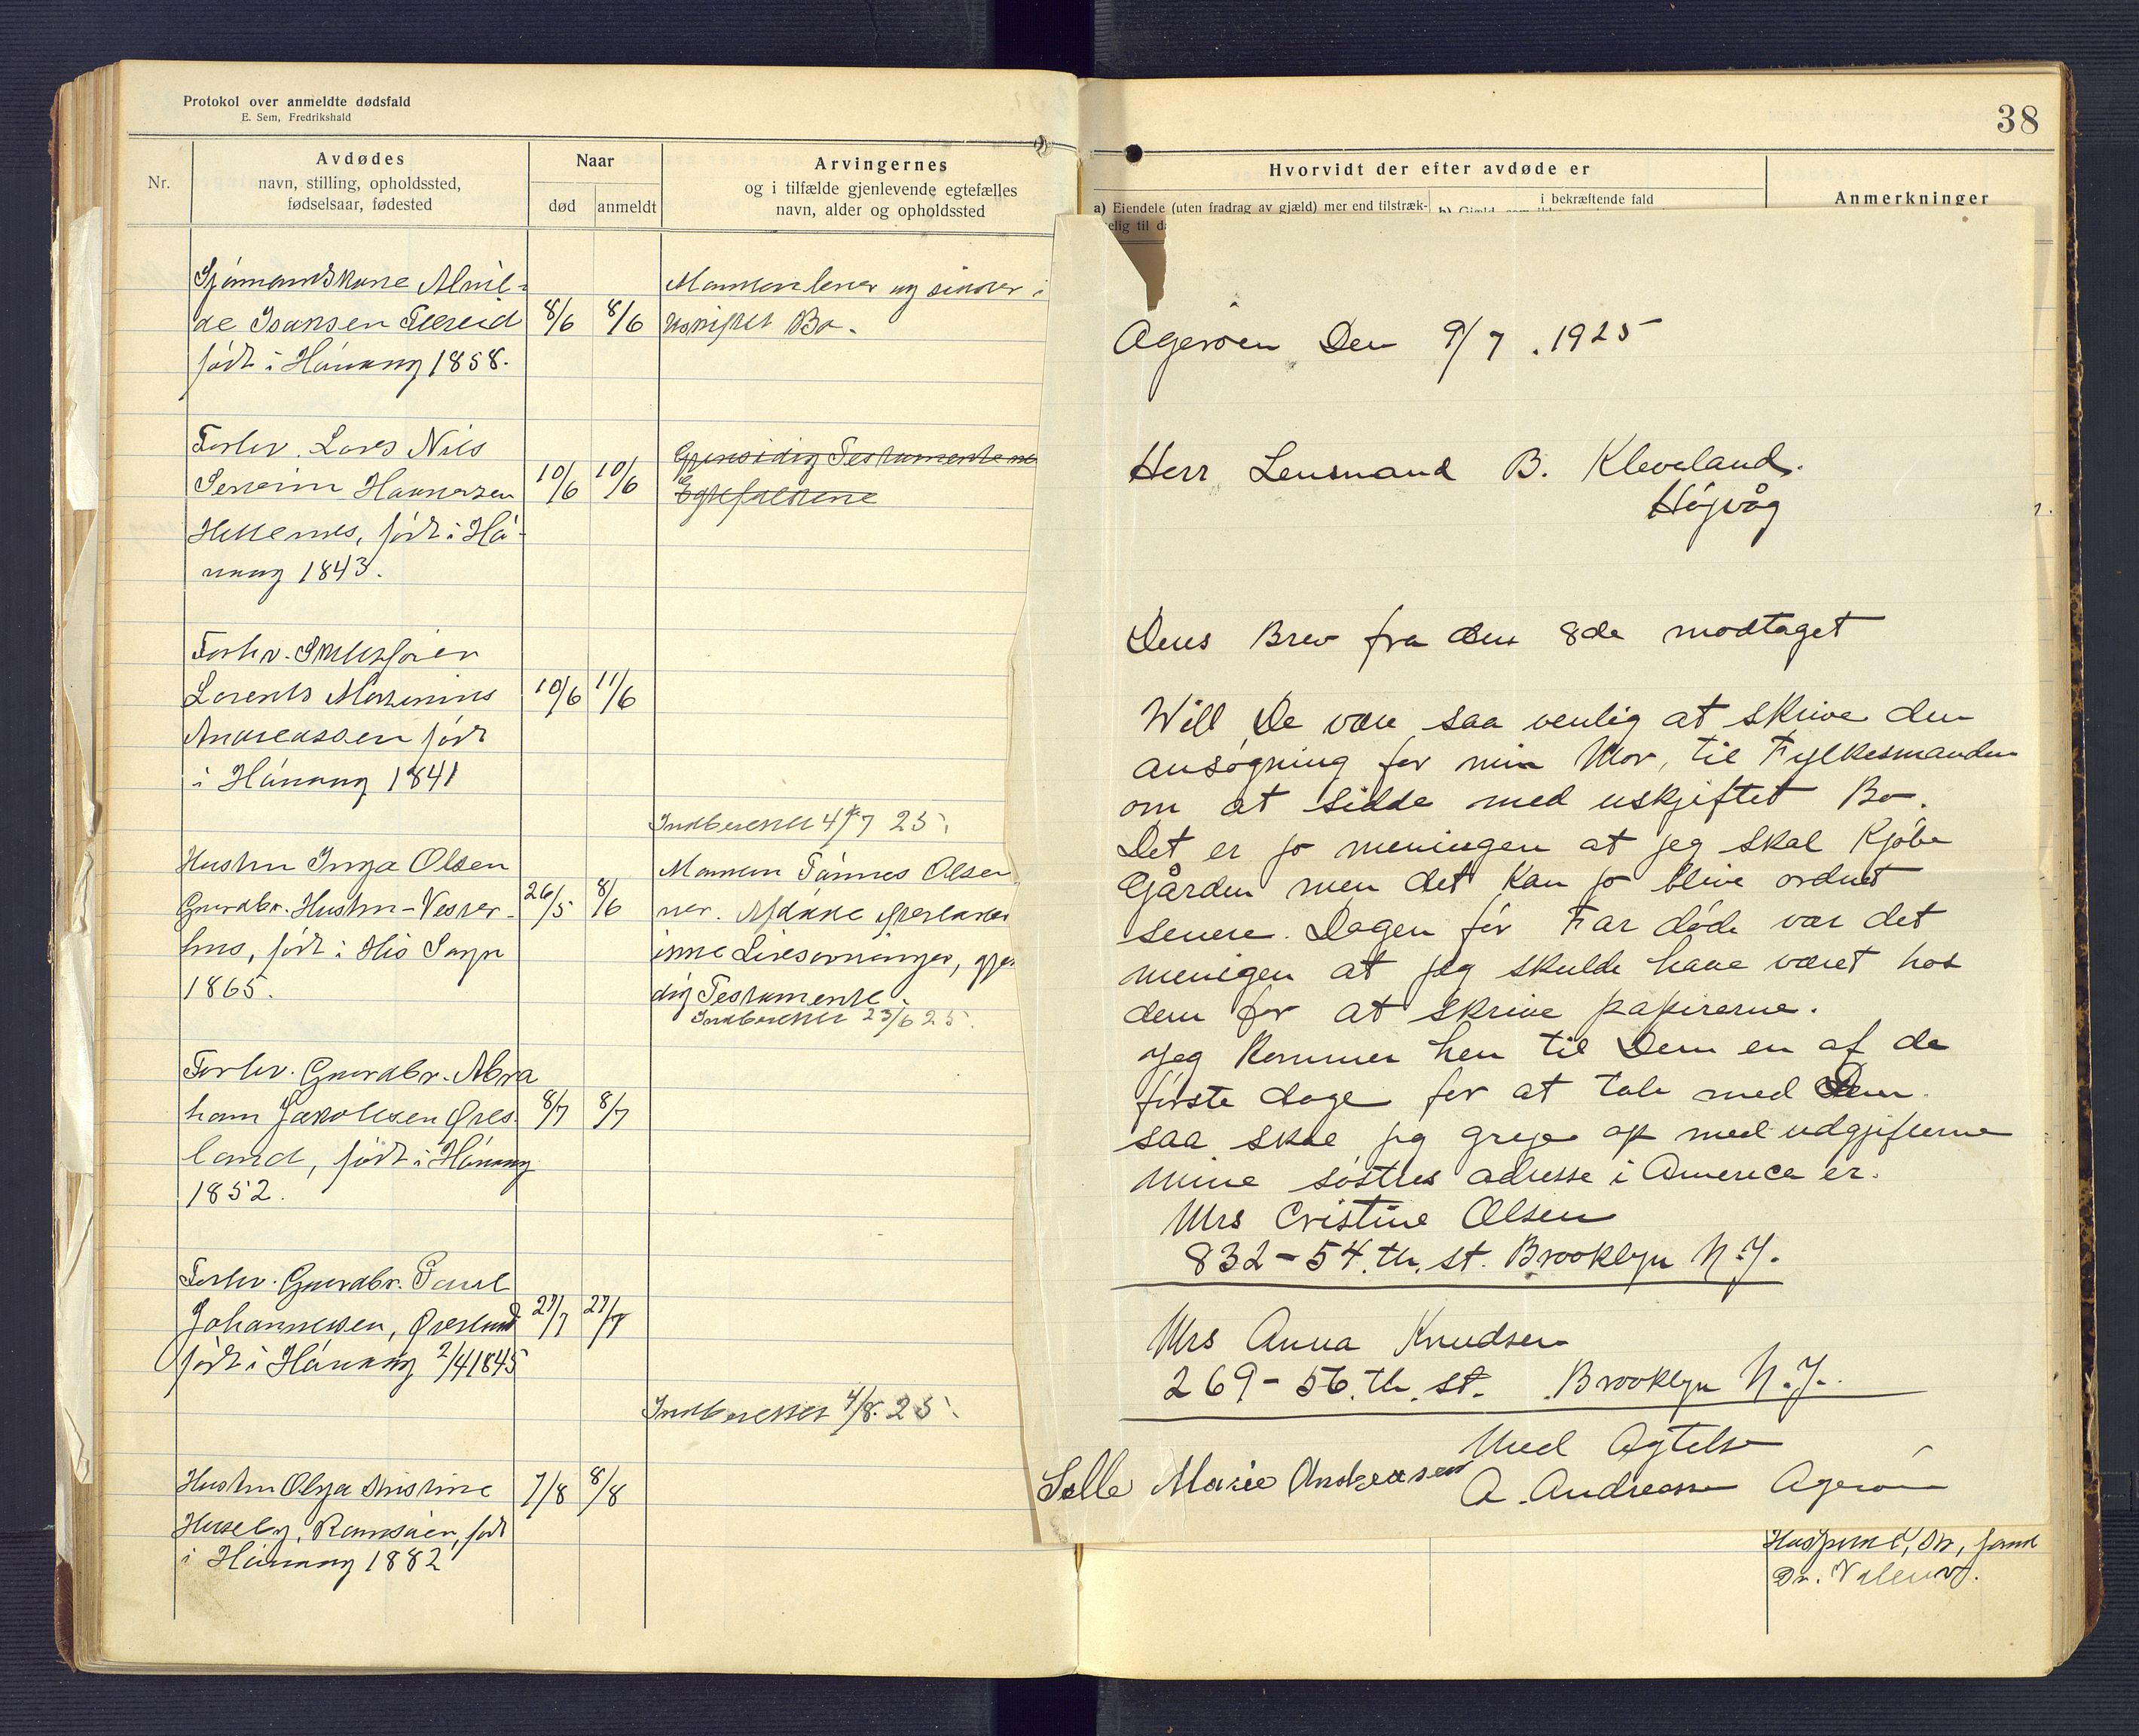 Protokol over anmeldte dødsfald
E. Sem, Fredrikshald
Nr.
Avdødes
navn, stilling, opholdssted,
fødselsaar, fødested
Naar
død
anmeldt
Arvingernes
og i tilfælde gjenlevende egtefælles
navn, alder og opholdssted
Sjömandskone Alvil-
de Isaksen
født i Höivaag 1858.
8/6
8/6
Manden lever og sidder i
uskiftet Bo.
Forhv. Lods Nils
Severin
født i Hö-
vaag 1843.
10/6
10/6
Gjensidig Testamente
Egtefællene
Forhv.
Lorents
Andreassen født
i Höivaag 1841
10/6
11/6
Indberettet 4/7 25.
Hustru Inga Olsen
Gaardbr. Hustru
hus, født i His Sogn
1865.
26/5
8/6
Manden Tönnes Olsen
Testamente.
Indberettet 23/6 25.
Forhv. Gaardbr. Abra
ham Jakobsen Øves
land, født i Höivaag
1852.
8/7
8/7
Forhv. Gaardbr. Paul
Johannessen, Øvesland
født i Höivaag 2/4 1845
27/7
27/7
Indberettet 4/8. 25.
Hustru Olga Kristine
Huseby, Ramsöen, født
i Höivaag 1882
7/8
8/8
38
Hvorvidt der efter avdøde er
a) Eiendele (uten fradrag av gjæld) mer end tilstræk-
elig til d
i bekræftende fald
Anmerkninger
Ageröen Den 9/7. 1925
Herr Lensmand B. Kleveland.
Højvåg
Deres Brev fra den 8de modtaget
Will De være saa venlig at skrive den
ansøgning for min Mor, til Fylkesmanden
om at sidde med uskjiftet Bo.
Det er jo meningen at jeg skal Kjøbe
Gården men det kan jo blive ordnet
senere. Dagen før Far døde var det
menigen at jeg skulde have været hos
dem for at skrive papirerne.
Jeg kommer hen til Dem en af de
første dage for at tale med Dem.
saa skal jeg greje op med udgjifterne
Mine søstres adresse i America er.
Mrs Cristine Olsen
832-54.th. st. Brooklyn N.Y.
Mrs Anna Knudsen
269-56.th. st. Brooklyn N.Y.
Med Agtelse
Salle Marie Andreasen
A. Andreassen Agerøen
Dr.